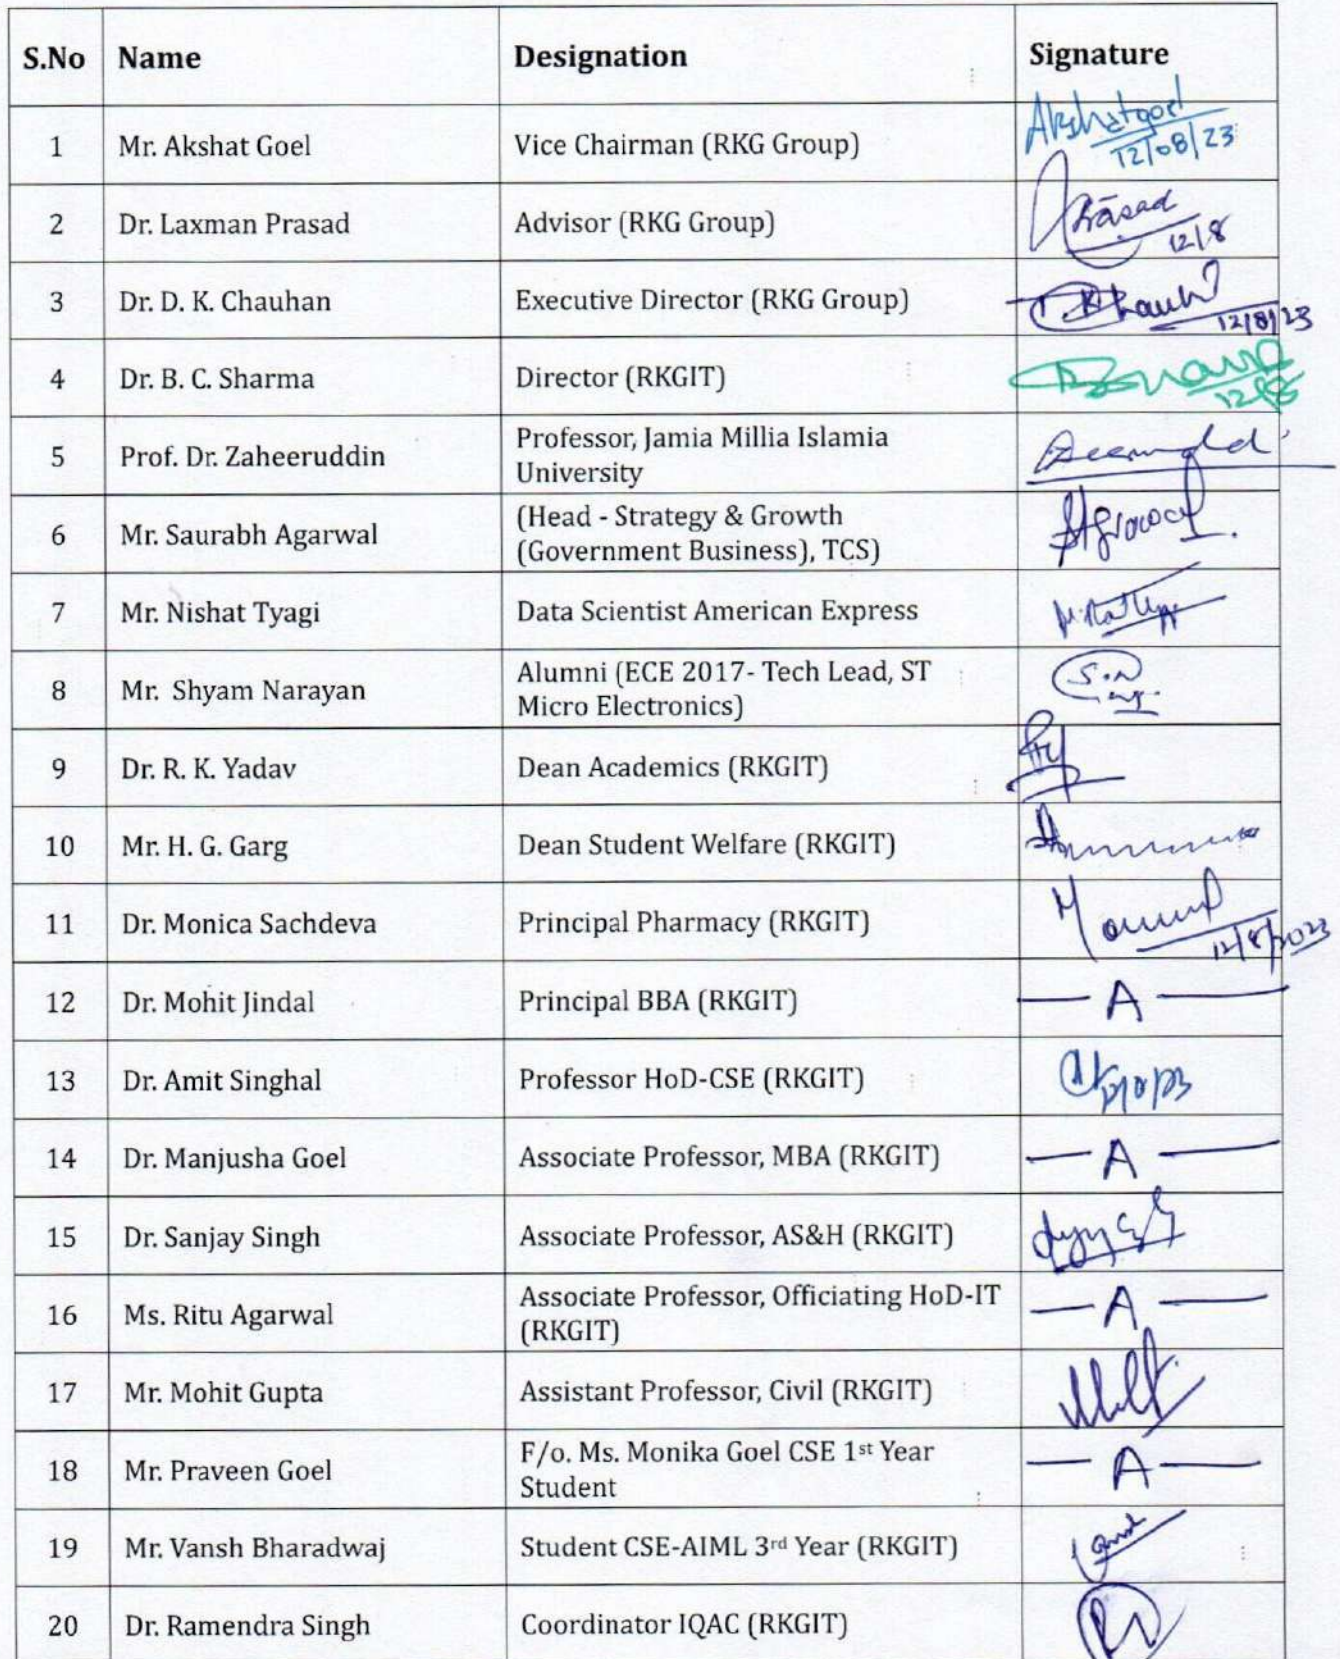 S.No Name Designation Signature
1 Mr. Akshat Goel Vice Chairman (RKG Group) Akshatgoel
12/08/23
2 Dr. Laxman Prasad Advisor (RKG Group) Prasad
12/8
3 Dr. D. K. Chauhan Executive Director (RKG Group)
12/8/23
4 Dr. B. C. Sharma Director (RKGIT)
12/8
5 Prof. Dr. Zaheeruddin Professor, Jamia Millia Islamia
University
6 Mr. Saurabh Agarwal (Head - Strategy & Growth
(Government Business), TCS)
7 Mr. Nishat Tyagi Data Scientist American Express
8 Mr. Shyam Narayan Alumni (ECE 2017- Tech Lead, ST
Micro Electronics)
9 Dr. R. K. Yadav Dean Academics (RKGIT)
10 Mr. H. G. Garg Dean Student Welfare (RKGIT)
11 Dr. Monica Sachdeva Principal Pharmacy (RKGIT)
12/8/2023
12 Dr. Mohit Jindal Principal BBA (RKGIT) — A —
13 Dr. Amit Singhal Professor HoD-CSE (RKGIT)
14 Dr. Manjusha Goel Associate Professor, MBA (RKGIT) — A —
15 Dr. Sanjay Singh Associate Professor, AS&H (RKGIT)
16 Ms. Ritu Agarwal Associate Professor, Officiating HoD-IT
(RKGIT) — A —
17 Mr. Mohit Gupta Assistant Professor, Civil (RKGIT)
18 Mr. Praveen Goel F/o. Ms. Monika Goel CSE 1st Year
Student — A —
19 Mr. Vansh Bharadwaj Student CSE-AIML 3rd Year (RKGIT)
20 Dr. Ramendra Singh Coordinator IQAC (RKGIT)